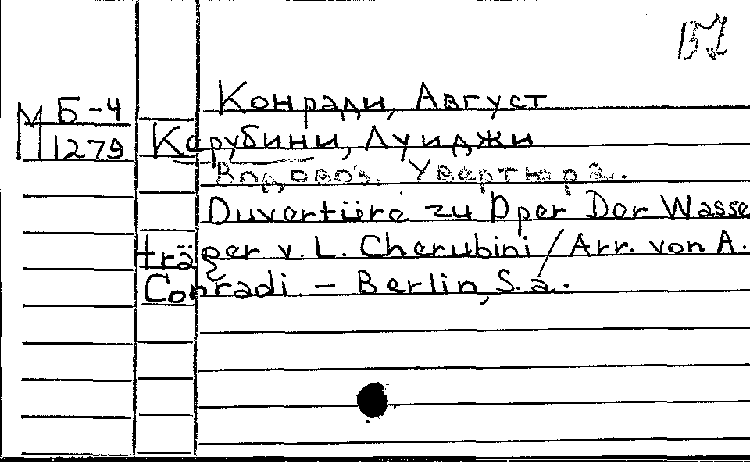 157
Конради, Август
М Б-4
1279 Керубини, Луиджи
Водовоз. Увертюра.
Ouvertüre zu Oper Der Wasse
träger v. L. Cherubini / Arr. von A.
Conradi - Berlin, S.a.